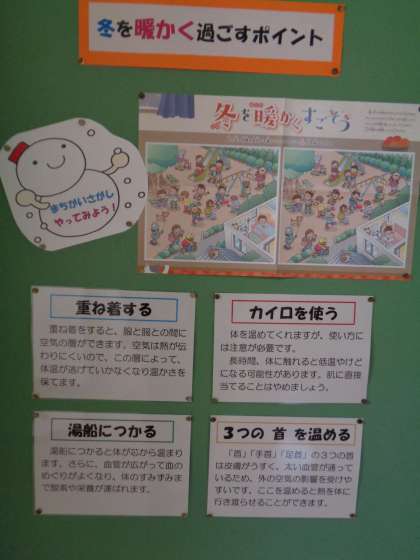 冬を暖かく過ごすポイント
冬を暖かくすごそう
まちがいさがし
やってみよう！
重ね着する
重ね着をすると、服と服との間に
空気の層ができます。空気は熱が伝
わりにくいので、この層によって、
体温が逃げていかなくなり温かさを
保てます。
カイロを使う
体を温めてくれますが、使い方に
は注意が必要です。
長時間、体に触れると低温やけど
になる可能性があります。肌に直接
当てることはやめましょう。
湯船につかる
湯船につかると体が芯から温まり
ます。さらに、血管が広がって血の
めぐりがよくなり、体のすみずみま
で酸素や栄養が運ばれます。
３つの 首 を温める
「首」「手首」「足首」の３つの首
は皮膚がうすく、太い血管が通って
いるため、外の空気の影響を受けや
すいです。ここを温めると熱を体に
行き渡らせることができます。